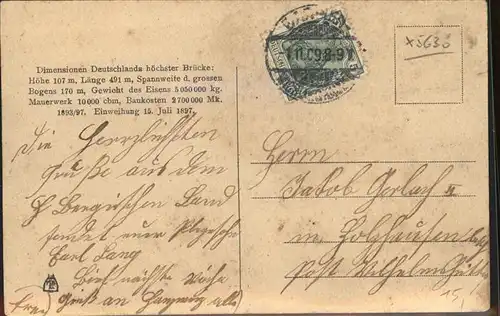 Dimensionen Deutschlands höchster Brücke:
Höhe 107 m, Länge 491 m, Spannweite d. grossen
Bogens 170 m, Gewicht des Eisens 5 050 000 kg.
Mauerwerk 10 000 cbm, Baukosten 2 700 000 Mk.
1893/97. Einweihung 15. Juli 1897.
x5638
11.09.8-9
Die Herzlichsten
Grüße aus dem
Bergischen Land
sendet euer
Karl Lang
Bis nächste Woche
Gruß an alle
Herrn
Jakob Gerlach
in Holzhausen
Post Wilhelmshütte
15,